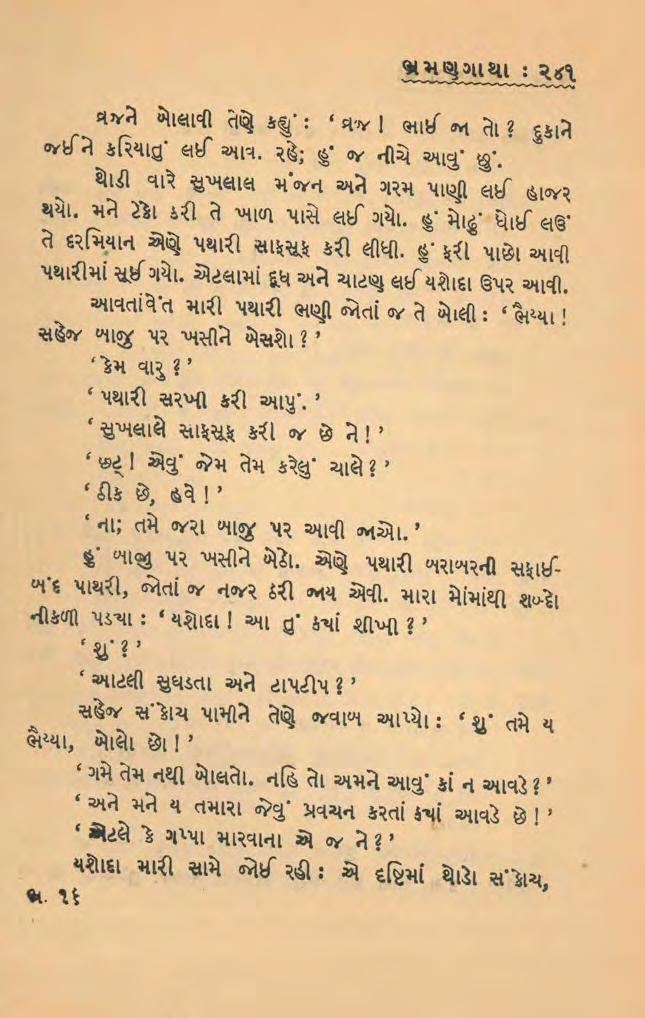 ભ્રમણગાથા : ૨૪૧
વ્રજને બોલાવી તેણે કહ્યું : ‘ વ્રજ ! ભાઈ જા તો ? દુકાને
જઈને કરિયાતું લઈ આવ. રહે; હું જ નીચે આવું છું.
થોડી વારે સુખલાલ મંજન અને ગરમ પાણી લઈ હાજર
થયો. મને ટેકો કરી તે ખાળ પાસે લઈ ગયો. હું મોઢું ધોઈ લઉં
તે દરમિયાન એણે પથારી સાફસૂફ કરી લીધી. હું ફરી પાછો આવી
પથારીમાં સૂઈ ગયો. એટલામાં દૂધ અને ચાટણ લઈ યશોદા ઉપર આવી.
આવતાંવેંત મારી પથારી ભણી જોતાં જ તે બોલી : ‘ ભૈય્યા !
સહેજ બાજુ પર ખસીને બેસશો ? ’
‘ કેમ વારુ ? ’
‘ પથારી સરખી કરી આપું. ’
‘ સુખલાલે સાફસૂફ કરી જ છે ને ! ’
‘ છટ્ ! એવું જેમ તેમ કરેલું ચાલે ? ’
‘ ઠીક છે, હવે ! ’
‘ ના; તમે જરા બાજુ પર આવી જાઓ. ’
હું બાજુ પર ખસીને બેઠો. એણે પથારી બરાબરની સફાઈ-
બંદ પાથરી, જોતાં જ નજર ઠરી જાય એવી. મારા મોંમાંથી શબ્દો
નીકળી પડયા : ‘ યશોદા ! આ તું કયાં શીખી ? ’
‘ શું ? ’
‘ આટલી સુઘડતા અને ટાપટીપ ? ’
સહેજ સંકોચ પામીને તેણે જવાબ આપ્યો : ‘ શું તમે ય
ભૈય્યા, બોલો છો ! ’
‘ ગમે તેમ નથી બોલતો. નહિ તો અમને આવું કાં ન આવડે ? ’
‘ અને મને ય તમારા જેવું પ્રવચન કરતાં કયાં આવડે છે ! ’
‘ એટલે કે ગપ્પા મારવાના એ જ ને ? ’
યશોદા મારી સામે જોઈ રહી : એ દૃષ્ટિમાં થોડો સંકોચ,
ભ. ૧૬